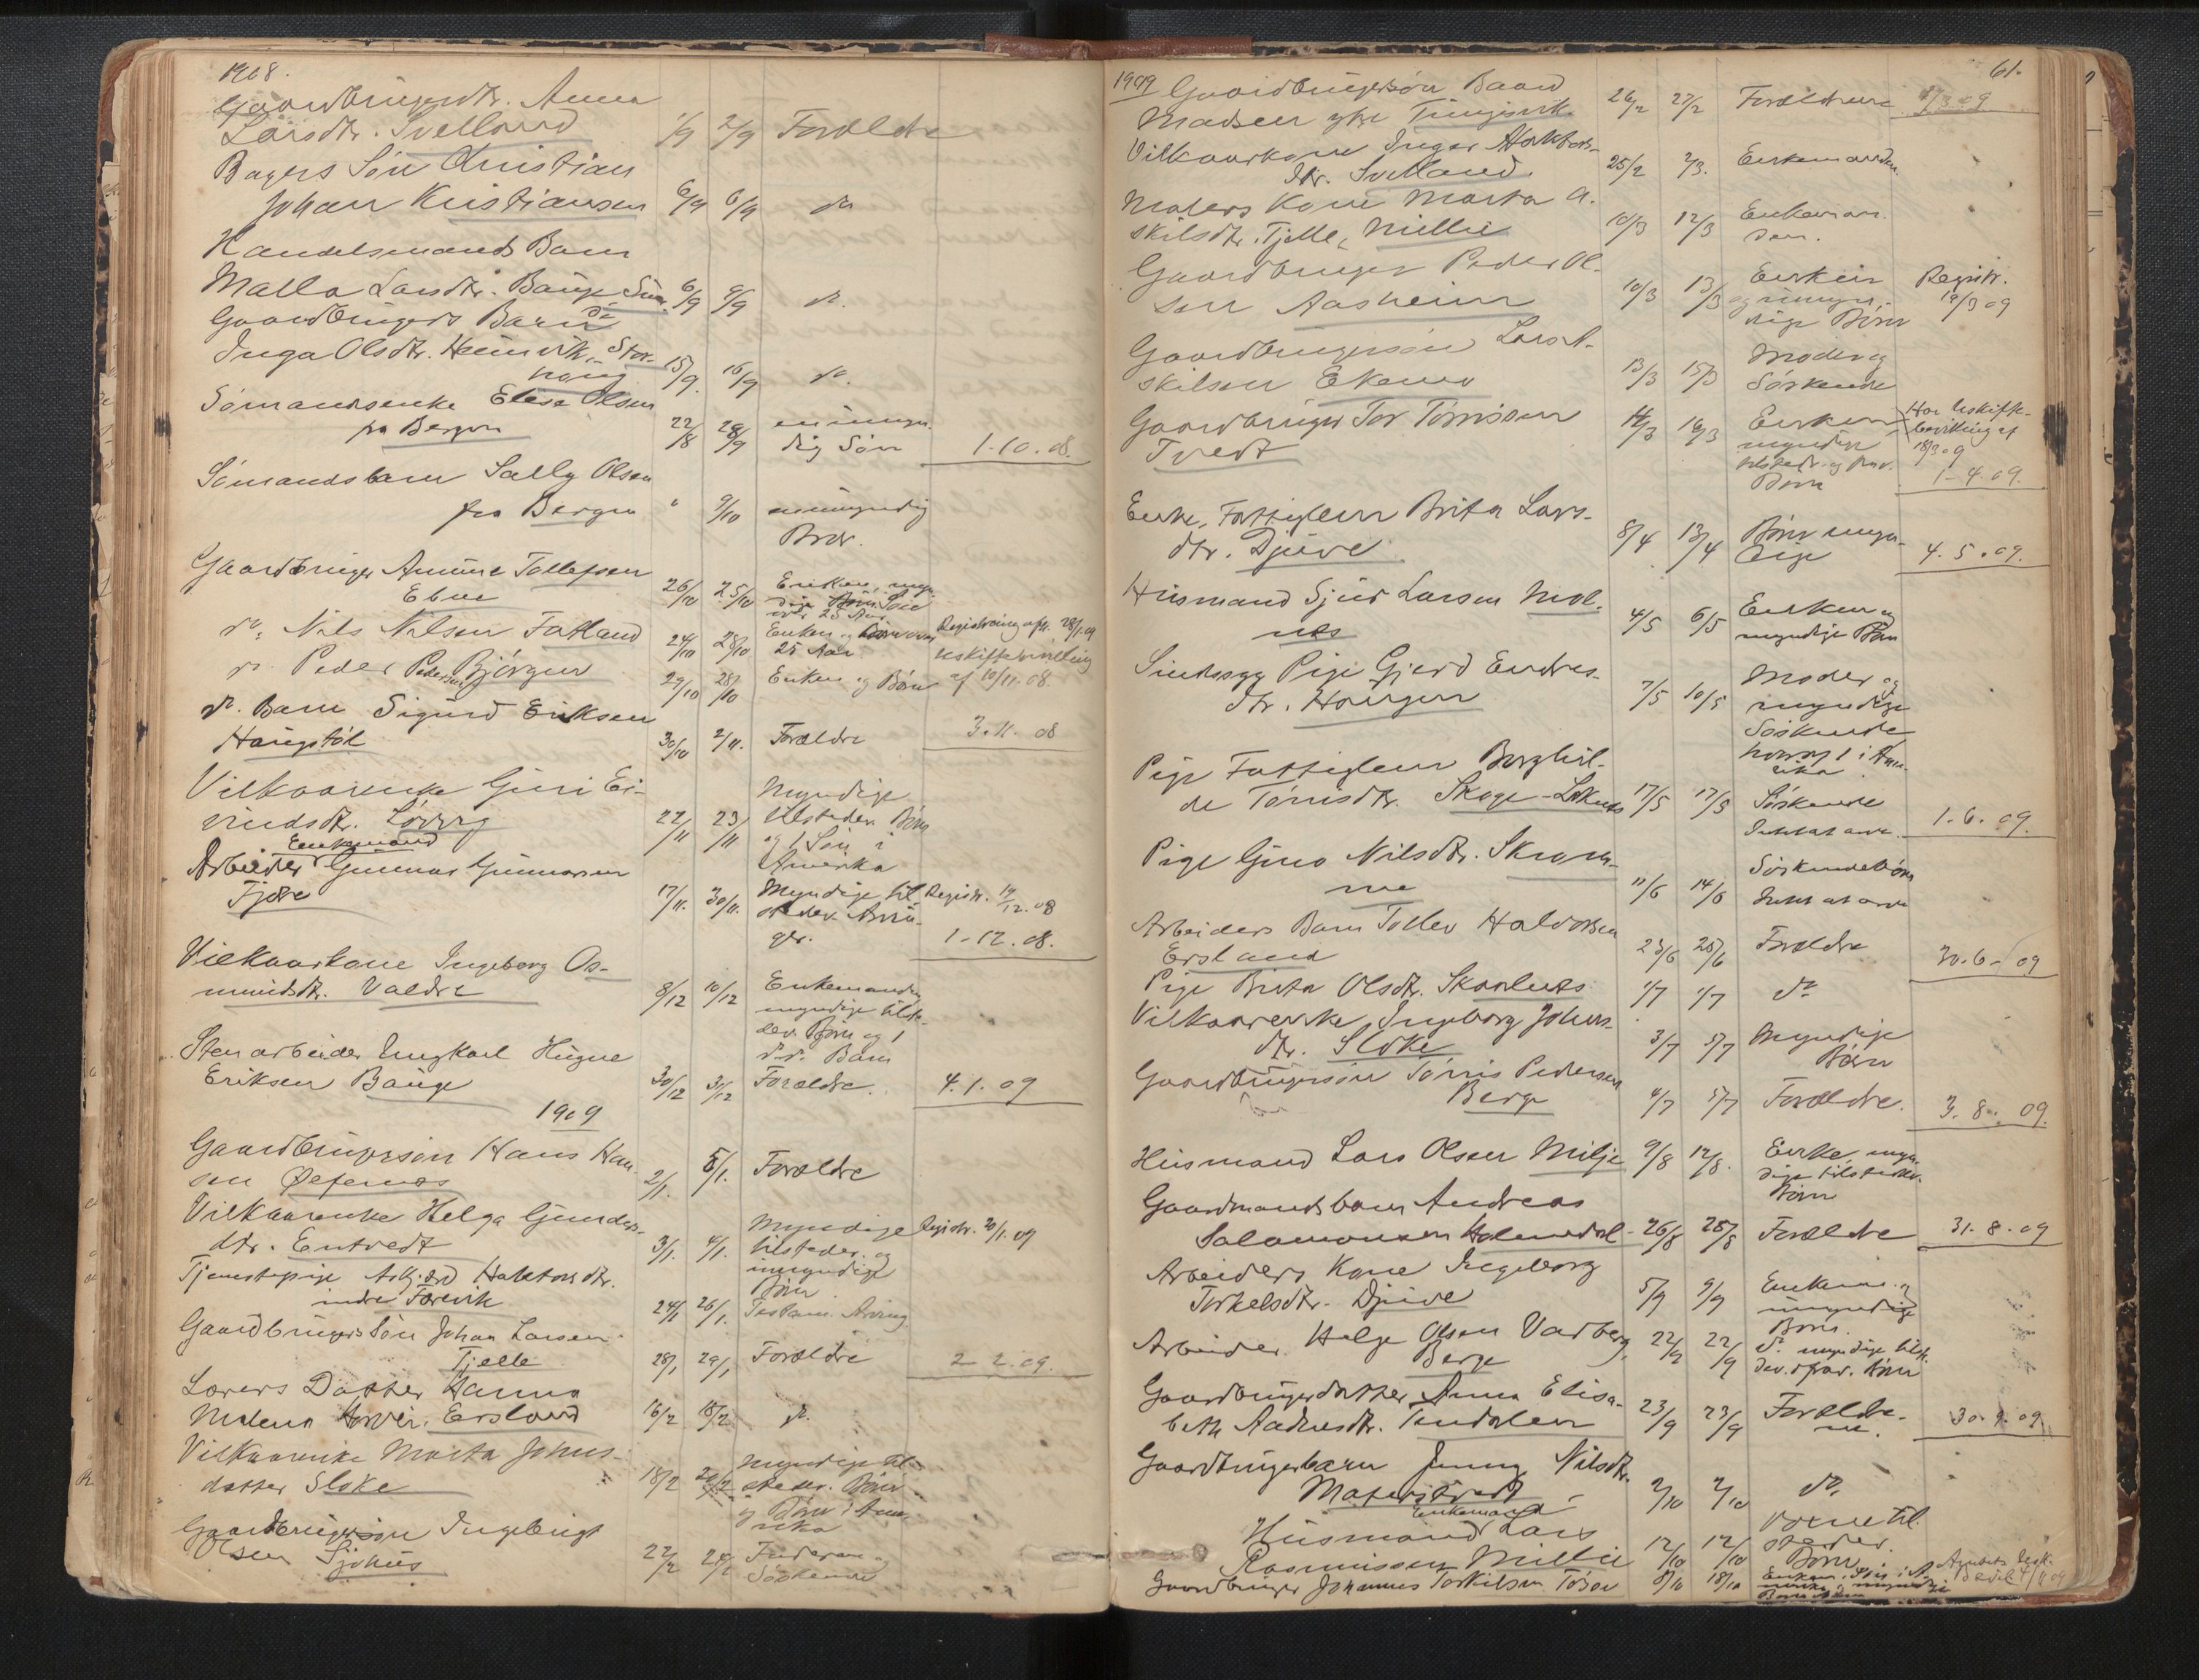 1908.
Gaardbrugerdtr. Anna
Larsdtr. Svelland 1/9 2/9 Forældre
Bagers Søn Christian
Johan Kristiansen 6/9 6/9 do
Handelsmands Barn
Malla Larsdtr. Bauge 6/9 9/9 do.
Gaardbrugers Barn
Inga Olsdtr. Heimvik, Stor-
haug 15/9. 16/9 do.
Sømandsenke Elesa Olsen
fra Bergen 22/8 28/9 umyn-
dig Søn 1.10.08.
Sømandsbarn Sally Olsen
fra Bergen " 9/10 umyndig
Bror.
Gaardbruger Amund Tollefsen
Ebne 20/10 25/10 Enken, myn-
dige Søn
over 25 Aar
do. Nils Nilsen Fatland 24/10 28/10 Enken og Børn over
25 Aar Registrering afh. 28/1.09
do. Peder Pedersen Bjørgen 29/10 28/10 Enken og Børn uskiftebevilling
af 10/11.08.
do. Barn Sigurd Eriksen
Haugstøl 30/10 2/11. Forældre 3.11.08
Vilkaarenke Guri Ei-
vindsdtr. 22/11 23/11 Myndige
tilstedev. Børn
og 1 Søn i
Amerika
Enkemand
Arbeider Gunnar Gunnarsen
Fjære 17/11. 30/11. Myndige til-
stedev. Arvin-
ger. Registr. 14/12.08
1-12.08.
Vilkaarkone Ingeborg Os-
mundsdtr. Valdre 8/12 10/12 Enkemanden
myndige tilste-
dev. Børn og 1
do. do. Barn
Stenarbeider Ungkarl Hugne
Eriksen Bauge 30/12 31/12 Forældre. 4.1.09
1909
Gaardbrugersøn Hans Han-
sen Øefernes 2/1. 5/1. Forældre
Vilkaarenke Helga Gunders-
dtr. Entvedt 3/1. 4/1. Myndige
tilstedev. og
umyndige
Børn Registr. 20/1.09
Tjenestepige Haktorsdtr.
indre Førevik 24/1 26/1. Testam. Arving
Gaardbrugers Søn Johan Larsen
Tjelle 28/1 29/1 Forældre 2-2.09.
Lærers Datter Hanna
Malena Ersland 16/2 18/2 do.
Vilkaarenke Marta Johns-
datter Sloke 18/2 20/2 myndige til-
stedev. Børn
og Børn i Ame-
rika
Gaardbrugersøn Ingebrigt
Olsen Sjohus 22/2 24/2 Faderen og
Søskende
61.
1909 Gaardbrugersøn Baard
Madsen ytre Tungesvik 26/2 27/2 Forældrene
Vilkaarkone Inger Haktors-
dtr. Svelland. 25/2 2/3. Enkemanden
Malers Kone Marta A-
skilsdtr. Tjelle, Millie 10/3 12/3 Enkeman-
den.
Gaardbruger Peder Ol-
sen Aasheim 10/3 13/3 Enken
og umyn-
dige Børn Registr.
19/3 09
Gaardbrugersøn Lars A-
skilsen Ekemo 13/3 15/3 Moder og
Søskende
Gaardbruger Tor Tørrisen
Tvedt 14/3 16/3 Enken
myndige
tilstedv. og frav.
Børn Har uskifte-
bevilling af
18/3 09
1-4.09.
Enke, Fattiglem Brita Lars-
dtr. Djuve 8/4 13/4 Børn myn-
dige 4.5.09.
Husmand Sjur Larsen Mol-
nes 4/5 6/5 Enken og
myndige Børn
Sindssyg Pige Gjerd Endres-
dtr. Haugen 7/5 10/5 Moder og
myndige
Søskende
hvoraf 1 i Ame-
rika
Pige Fattiglem Borghil-
de Tørrisdtr. Skage- 17/5 17/5 Søskende
Intet at arve. 1.6.09.
Pige Guro Nilsdtr. Skram-
me 11/6 14/6 Søskendebørn
Intet at arve
Arbeiders Barn Tollev Haldorsen
Ersland 23/6 25/6 Forældre 30.6-09
Pige Brita Olsdtr. Skarlutz 1/7 1/7 do
Vilkaarenke Ingeborg Johns-
dtr. Sloke 3/7 5/7 Myndige
Børn
Gaardbrugersøn Tørris Pedersen
Berge 4/7 5/7 Forældre. 3.8.09.
Husmand Lars Olsen Milje 9/8 12/8. Enke, myn-
dige tilstedev.
Børn
Gaardmandsbarn Andreas
Salamonsen Holmedal 26/8 28/8 Forældre 31.8.09
Arbeiders Kone Ingeborg
Torkelsdtr. Djuve 5/9 9/9 Enkem. og
myndige
Børn.
Arbeider Helge Olsen Vadberg,
Berge 22/9 22/9 do. myndige tilst.
dev. & frav. Børn
Gaardbrugerdatter Anna Elisa-
beth Aadnesdtr. Tindalen 23/9 23/9 Forældre-
ne. 30.9.09.
Gaardbrugerbarn Jenny Nilsdtr.
Materstvedt 2/10 2/10 do.
Enkemand
Husmand Lars
Rasmussen Millie 12/10 12/10 Voxne til-
stedev.
Børn
Gaardbruger Johannes Torkilsen Tøsse 8/10 18/10 Enken,